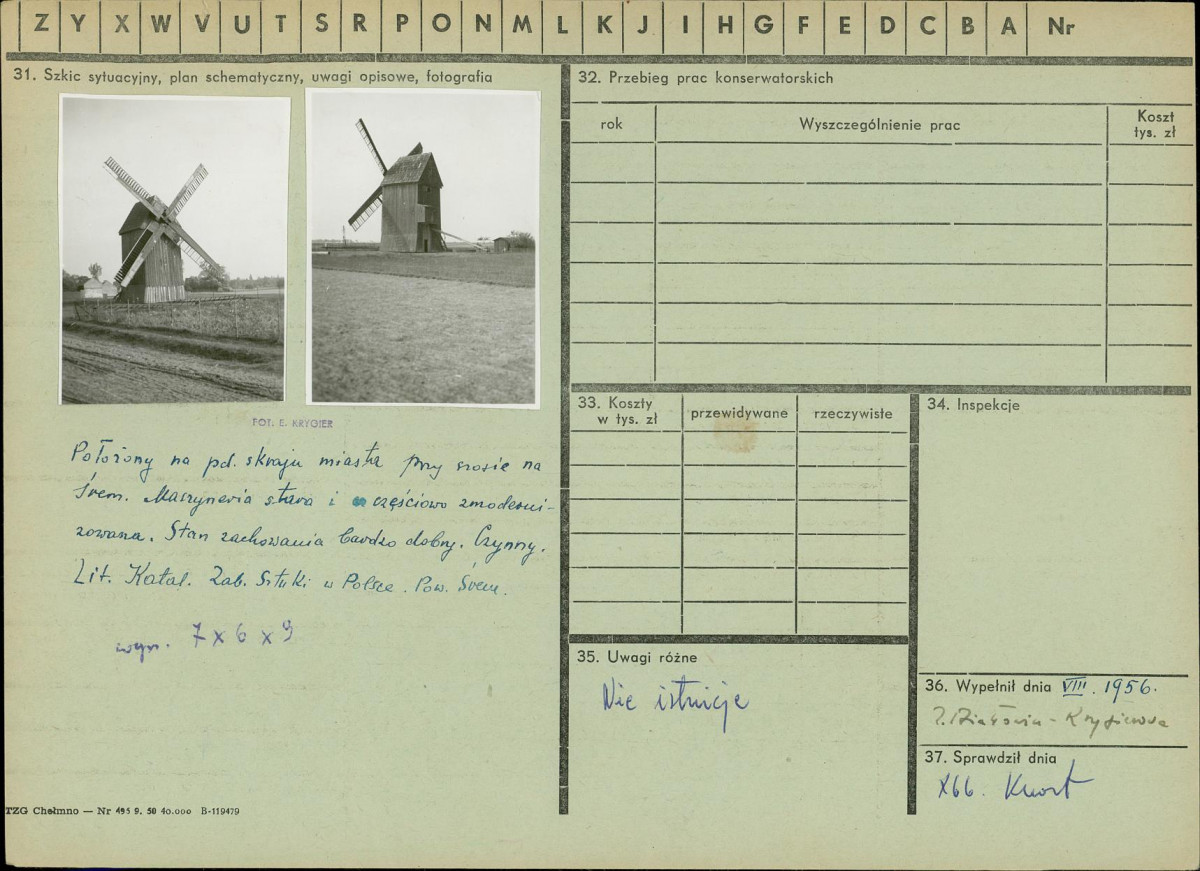 Z Y X W V U T S R P O N M L K J I H G F E D C B A Nr
31. Szkic sytuacyjny, plan schematyczny, uwagi opisowe, fotografia
FOT. E. KRYGIER
Położony na pd. skraju miasta przy szosie na
Śrem. Maszyneria stara i częściowo zmoderni-
zowana. Stan zachowania bardzo dobry. Czynny.
Lit. Katal. Zab. Sztuki w Polsce. Pow. Śrem.
wym. 7 x 6 x 9
TZG Chełmno — Nr 495 9. 50 40.000 B-119479
32. Przebieg prac konserwatorskich
rok Wyszczególnienie prac Koszt
tys. zł
33. Koszty
w tys. zł przewidywane rzeczywiste
34. Inspekcje
35. Uwagi różne
Nie istnieje
36. Wypełnił dnia VIII. 1956.
37. Sprawdził dnia
X66.